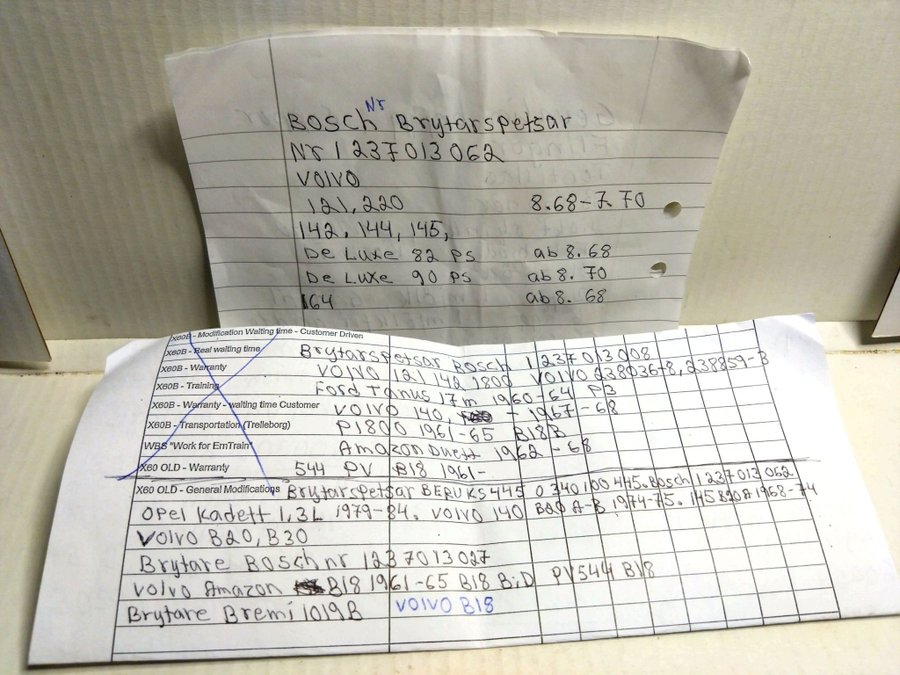 Nr
BOSCH Brytarspetsar
Nr 1 237 013 062
VOLVO
121, 220 8.68-7.70
142, 144, 145,
De Luxe 82 PS ab 8.68
De Luxe 90 PS ab 8.70
164 ab 8.68
X60B - Modification Waiting time - Customer Driven
X60B - Real waiting time Brytarspetsar BOSCH 1 237 013 008
X60B - Warranty VOLVO 121, 142, 1800 VOLVO 238036-8, 238859-3
X60B - Training Ford Tanus 17m 1960-64 P3
X60B - Warranty - waiting time Customer VOLVO 140, - 1967 - 68
X60B - Transportation (Trelleborg) P1800 1961-65 B18B
WBS "Work for EmTrain" Amazon Duett 1962 - 68
X60 OLD - Warranty 544 PV B18 1961-
X60 OLD - General Modifications Brytarspetsar BERU KS 445 0 340 100 445. Bosch 1 237 013 062
Opel Kadett 1,3L 1979-84. VOLVO 140 B20 A-B 1974-75. 145 B20A 1968-74
VOLVO B20, B30
Brytare Bosch nr 1237013027
Volvo Amazon B18 1961-65 B18 B:D PV544 B18
Brytare Bremi 1019B VOLVO B18